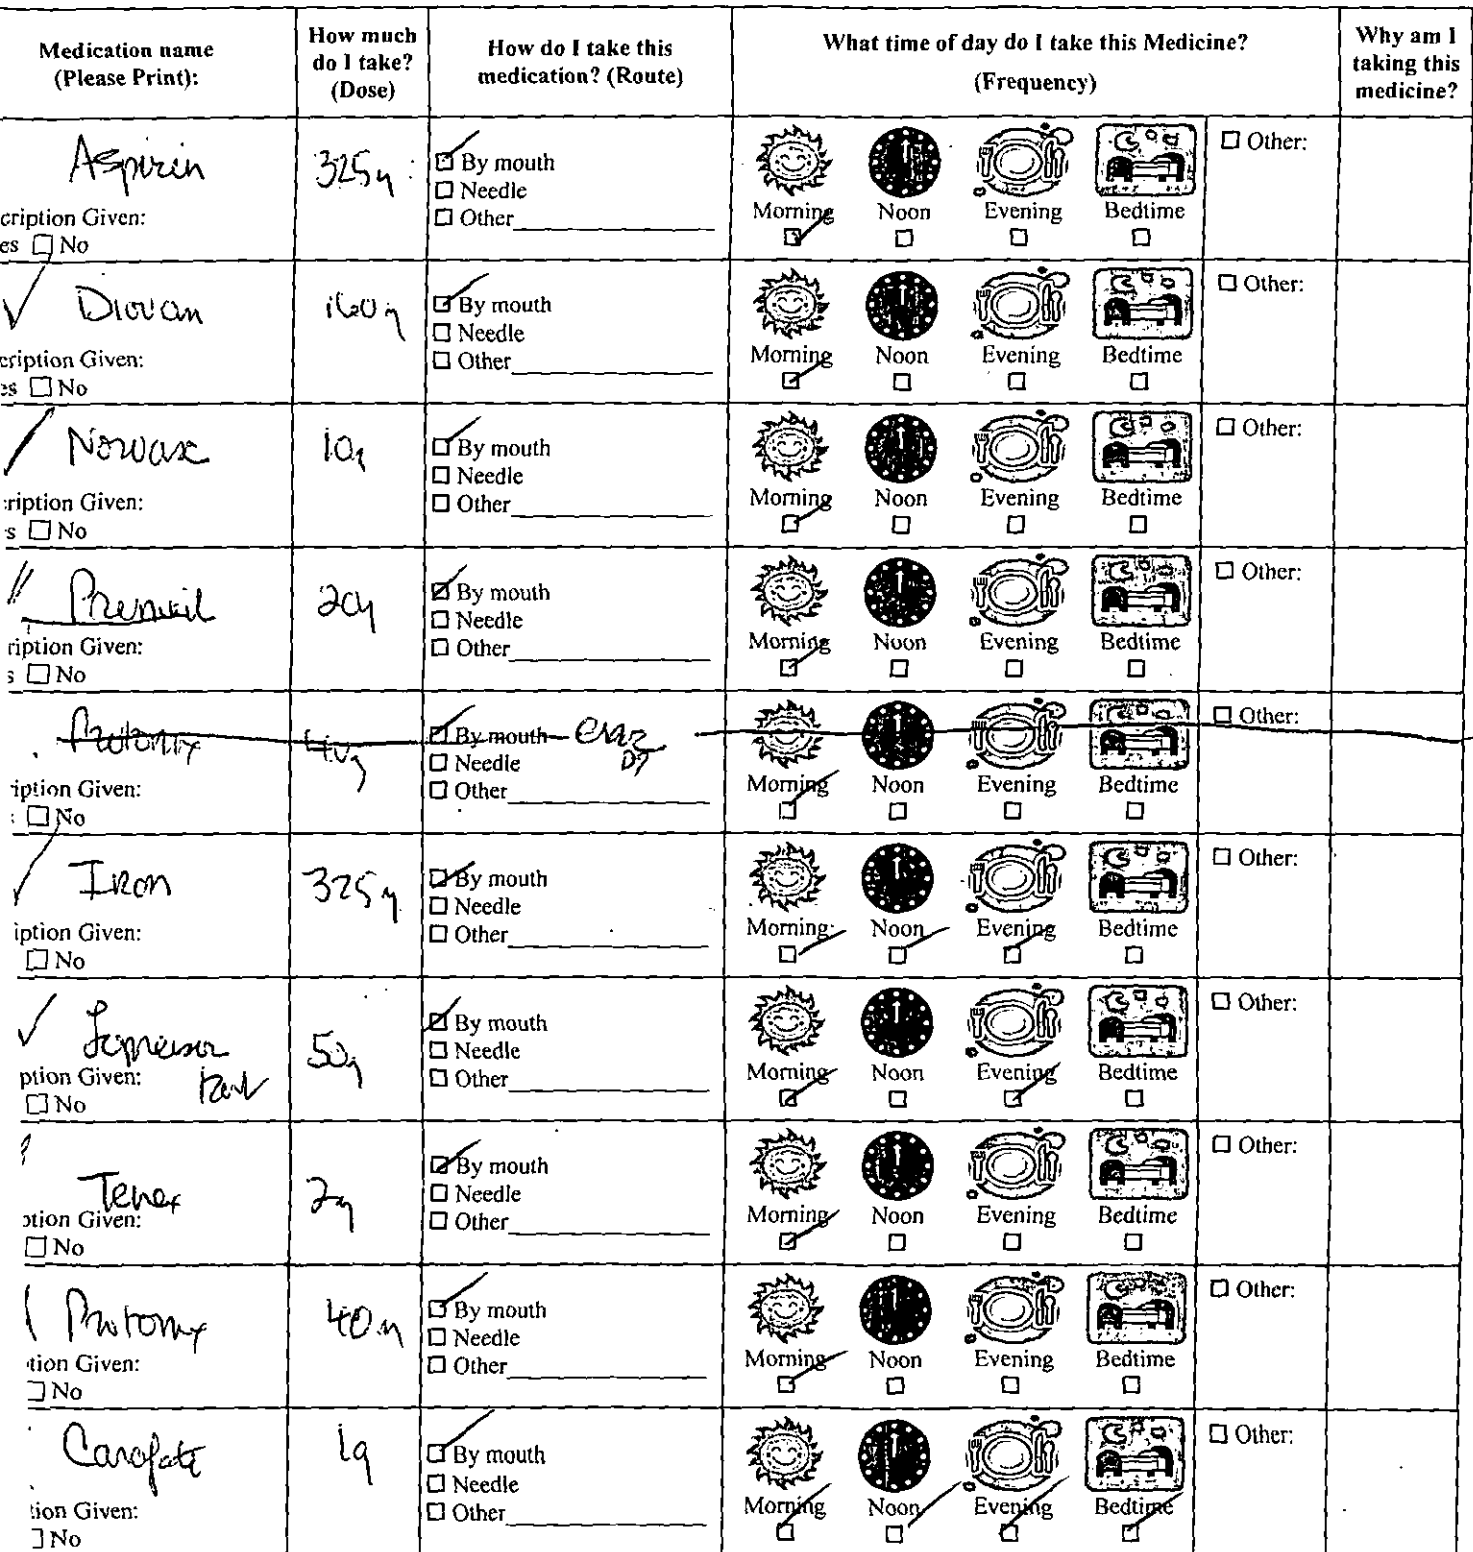 Medication name
(Please Print):
How much
do I take?
(Dose)
How do I take this
medication? (Route)
What time of day do I take this Medicine?
(Frequency)
Why am I
taking this
medicine?
Aspirin
325
cription Given:
es ☐ No
☑ By mouth
☐ Needle
☐ Other
Morning Noon Evening Bedtime
☐ Other:
Diovan
160
cription Given:
es ☐ No
☑ By mouth
☐ Needle
☐ Other
Morning Noon Evening Bedtime
☐ Other:
Norvasc
10
cription Given:
s ☐ No
☑ By mouth
☐ Needle
☐ Other
Morning Noon Evening Bedtime
☐ Other:
20
ription Given:
s ☐ No
☑ By mouth
☐ Needle
☐ Other
Morning Noon Evening Bedtime
☐ Other:
Protonix
40
iption Given:
☐ No
☑ By mouth
☐ Needle
☐ Other
Morning Noon Evening Bedtime
☐ Other:
Iron
325
iption Given:
☐ No
☑ By mouth
☐ Needle
☐ Other
Morning Noon Evening Bedtime
☐ Other:
Lopressor
50
ption Given:
☐ No
☑ By mouth
☐ Needle
☐ Other
Morning Noon Evening Bedtime
☐ Other:
Tenex
2
otion Given:
☐ No
☑ By mouth
☐ Needle
☐ Other
Morning Noon Evening Bedtime
☐ Other:
Protonix
40
tion Given:
No
☑ By mouth
☐ Needle
☐ Other
Morning Noon Evening Bedtime
☐ Other:
Carafate
1g
tion Given:
No
☑ By mouth
☐ Needle
☐ Other
Morning Noon Evening Bedtime
☐ Other: